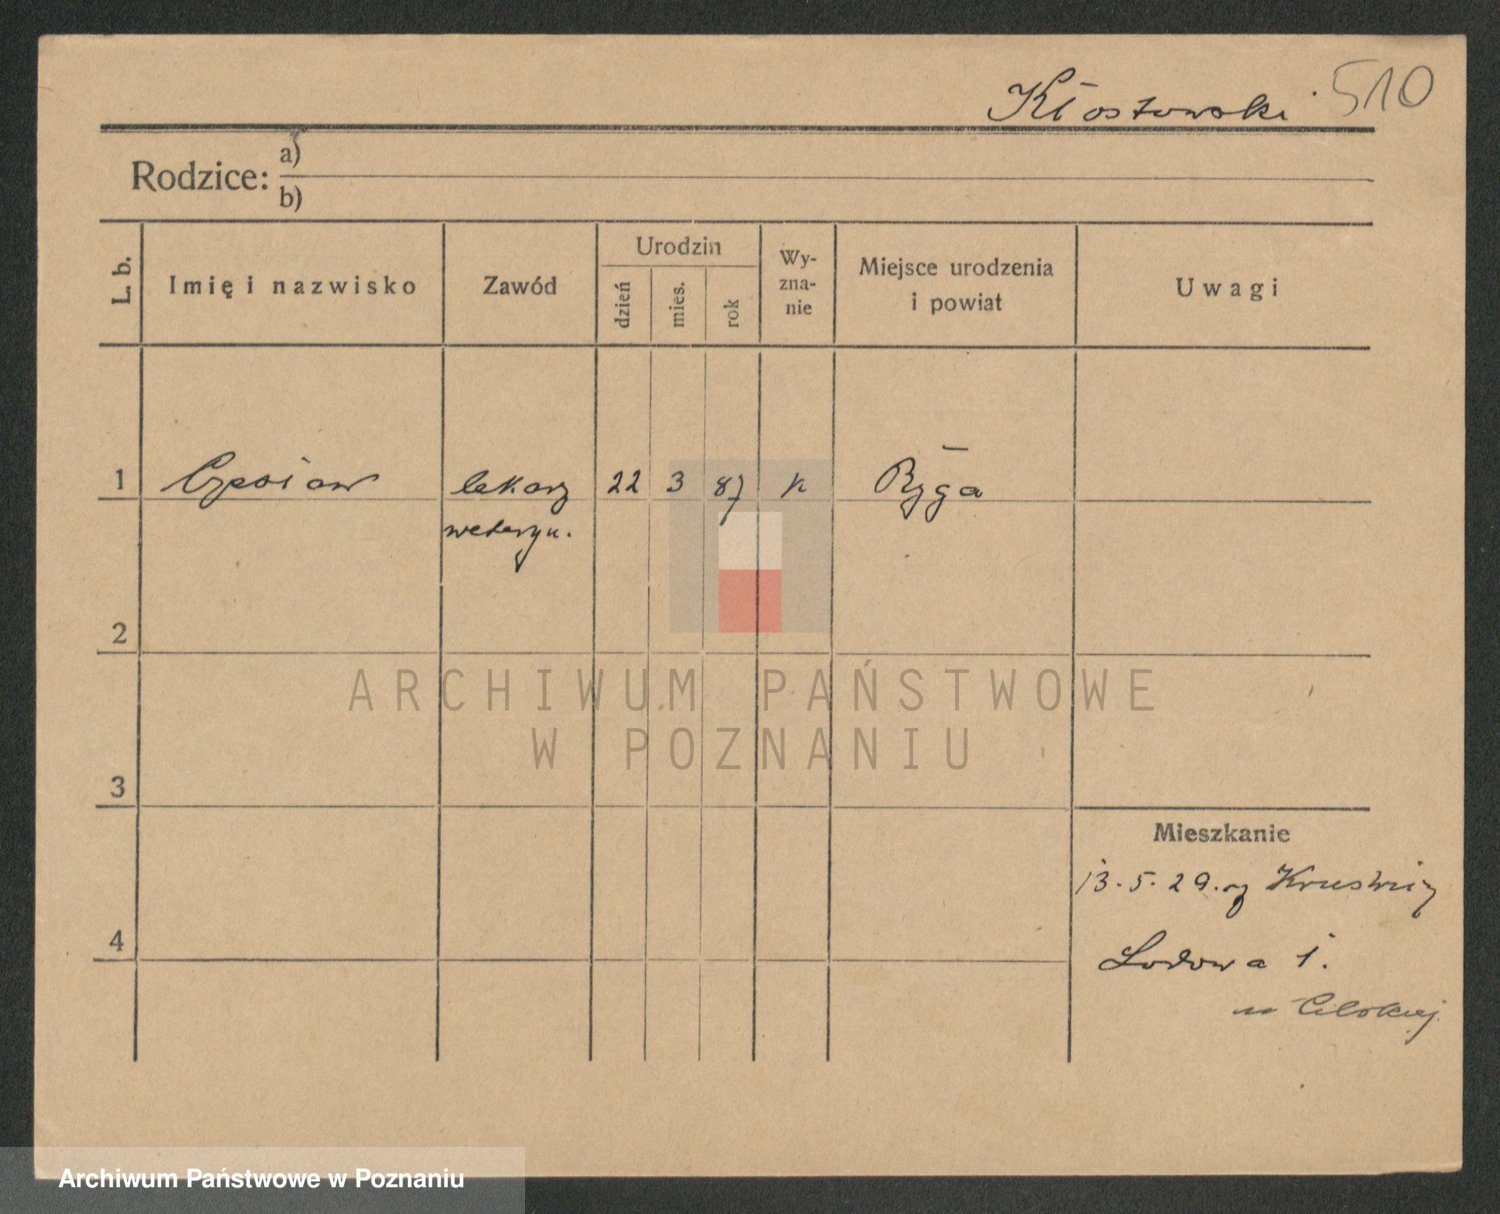 Kłostowski 510
Rodzice: a)
b)
L. b.
Imię i nazwisko
Zawód
Urodzin
dzień
mies.
rok
Wy-
zna-
nie
Miejsce urodzenia
i powiat
Uwagi
1 Czesław lekarz 22 3 87 k Ryga
weteryn.
2
ARCHIWUM PAŃSTWOWE
W POZNANIU
3
Mieszkanie
13.5.29. z Kruświcy
4
Lodowa 1.
u
Archiwum Państwowe w Poznaniu